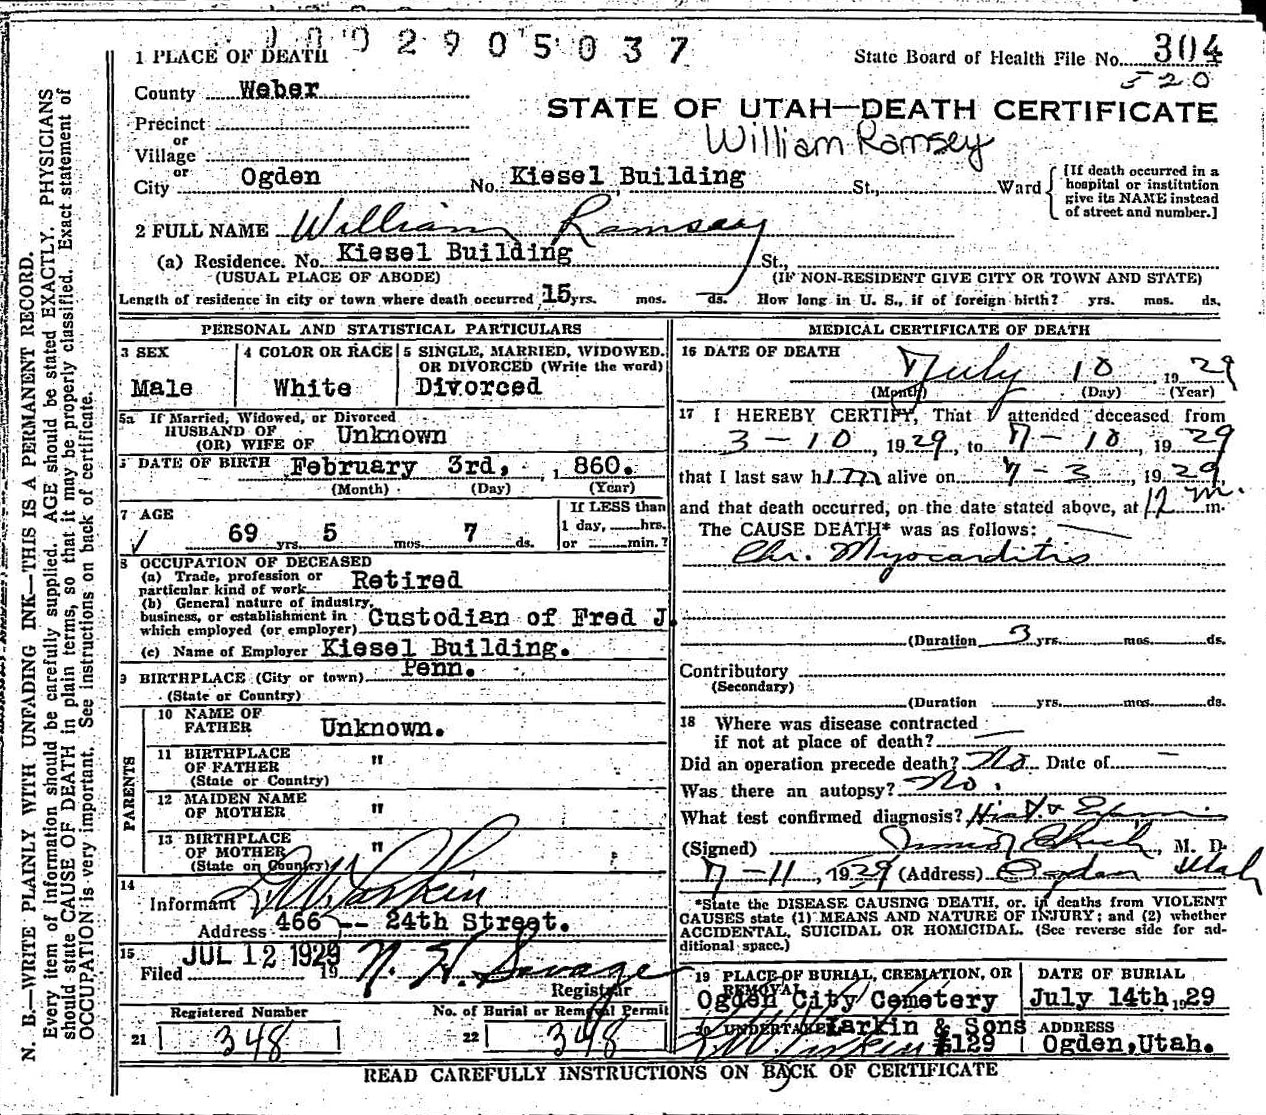 0 0 0 2 9 0 5 0 3 7
1 PLACE OF DEATH
State Board of Health File No. 304
520
County Weber
STATE OF UTAH—DEATH CERTIFICATE
Precinct
or
William Ramsey
Village
or
City Ogden No. Kiesel Building St., Ward
[If death occurred in a
hospital or institution
give its NAME instead
of street and number.]
2 FULL NAME William Ramsay
(a) Residence. No. Kiesel Building St.,
(USUAL PLACE OF ABODE) (IF NON-RESIDENT GIVE CITY OR TOWN AND STATE)
Length of residence in city or town where death occurred 15 yrs. mos. ds. How long in U. S., if of foreign birth? yrs. mos. ds.
PERSONAL AND STATISTICAL PARTICULARS
3 SEX
Male
4 COLOR OR RACE
White
5 SINGLE, MARRIED, WIDOWED,
OR DIVORCED (Write the word)
Divorced
5a If Married, Widowed, or Divorced
HUSBAND OF
(OR) WIFE OF Unknown
DATE OF BIRTH February 3rd, , 1860.
(Month) (Day) (Year)
7 AGE
69 yrs. 5 mos. 7 ds.
If LESS than
1 day, hrs.
or min.?
8 OCCUPATION OF DECEASED
(a) Trade, profession or
particular kind of work Retired
(b) General nature of industry,
business, or establishment in
which employed (or employer) Custodian of Fred J.
(c) Name of Employer Kiesel Building.
9 BIRTHPLACE (City or town) Penn.
(State or Country)
PARENTS
10 NAME OF
FATHER Unknown.
11 BIRTHPLACE
OF FATHER "
(State or Country)
12 MAIDEN NAME
OF MOTHER "
13 BIRTHPLACE
OF MOTHER "
(State or Country)
14
Informant Larkin
Address 466 -- 24th Street.
15 JUL 12 1929
Filed 19 N. H. Savage
Registrar
Registered Number
21 348
No. of Burial or Removal Permit
22 348
MEDICAL CERTIFICATE OF DEATH
16 DATE OF DEATH July 10 1929
(Month) (Day) (Year)
17 I HEREBY CERTIFY, That I attended deceased from
3-10, 1929, to 7-10, 1929
that I last saw him alive on 7-3, 1929,
and that death occurred, on the date stated above, at 12 m. m.
The CAUSE DEATH* was as follows:
Chr. Myocarditis
(Duration 3 yrs. mos. ds.
Contributory
(Secondary)
(Duration yrs. mos. ds.
18 Where was disease contracted
if not at place of death? —
Did an operation precede death? No Date of —
Was there an autopsy? No.
What test confirmed diagnosis? Hist. &
(Signed) , M. D.
7-11, 1929 (Address) Ogden Utah
*State the DISEASE CAUSING DEATH, or, in deaths from VIOLENT
CAUSES state (1) MEANS AND NATURE OF INJURY; and (2) whether
ACCIDENTAL, SUICIDAL OR HOMICIDAL. (See reverse side for ad-
ditional space.)
19 PLACE OF BURIAL, CREMATION, OR
REMOVAL
Ogden City Cemetery
DATE OF BURIAL
July 14th, 1929
20 UNDERTAKER Larkin & Sons
#129
ADDRESS
Ogden, Utah.
READ CAREFULLY INSTRUCTIONS ON BACK OF CERTIFICATE
N. B.—WRITE PLAINLY WITH UNFADING INK—THIS IS A PERMANENT RECORD.
Every item of information should be carefully supplied. AGE should be stated EXACTLY. PHYSICIANS
should state CAUSE OF DEATH in plain terms, so that it may be properly classified. Exact statement of
OCCUPATION is very important. See instructions on back of certificate.